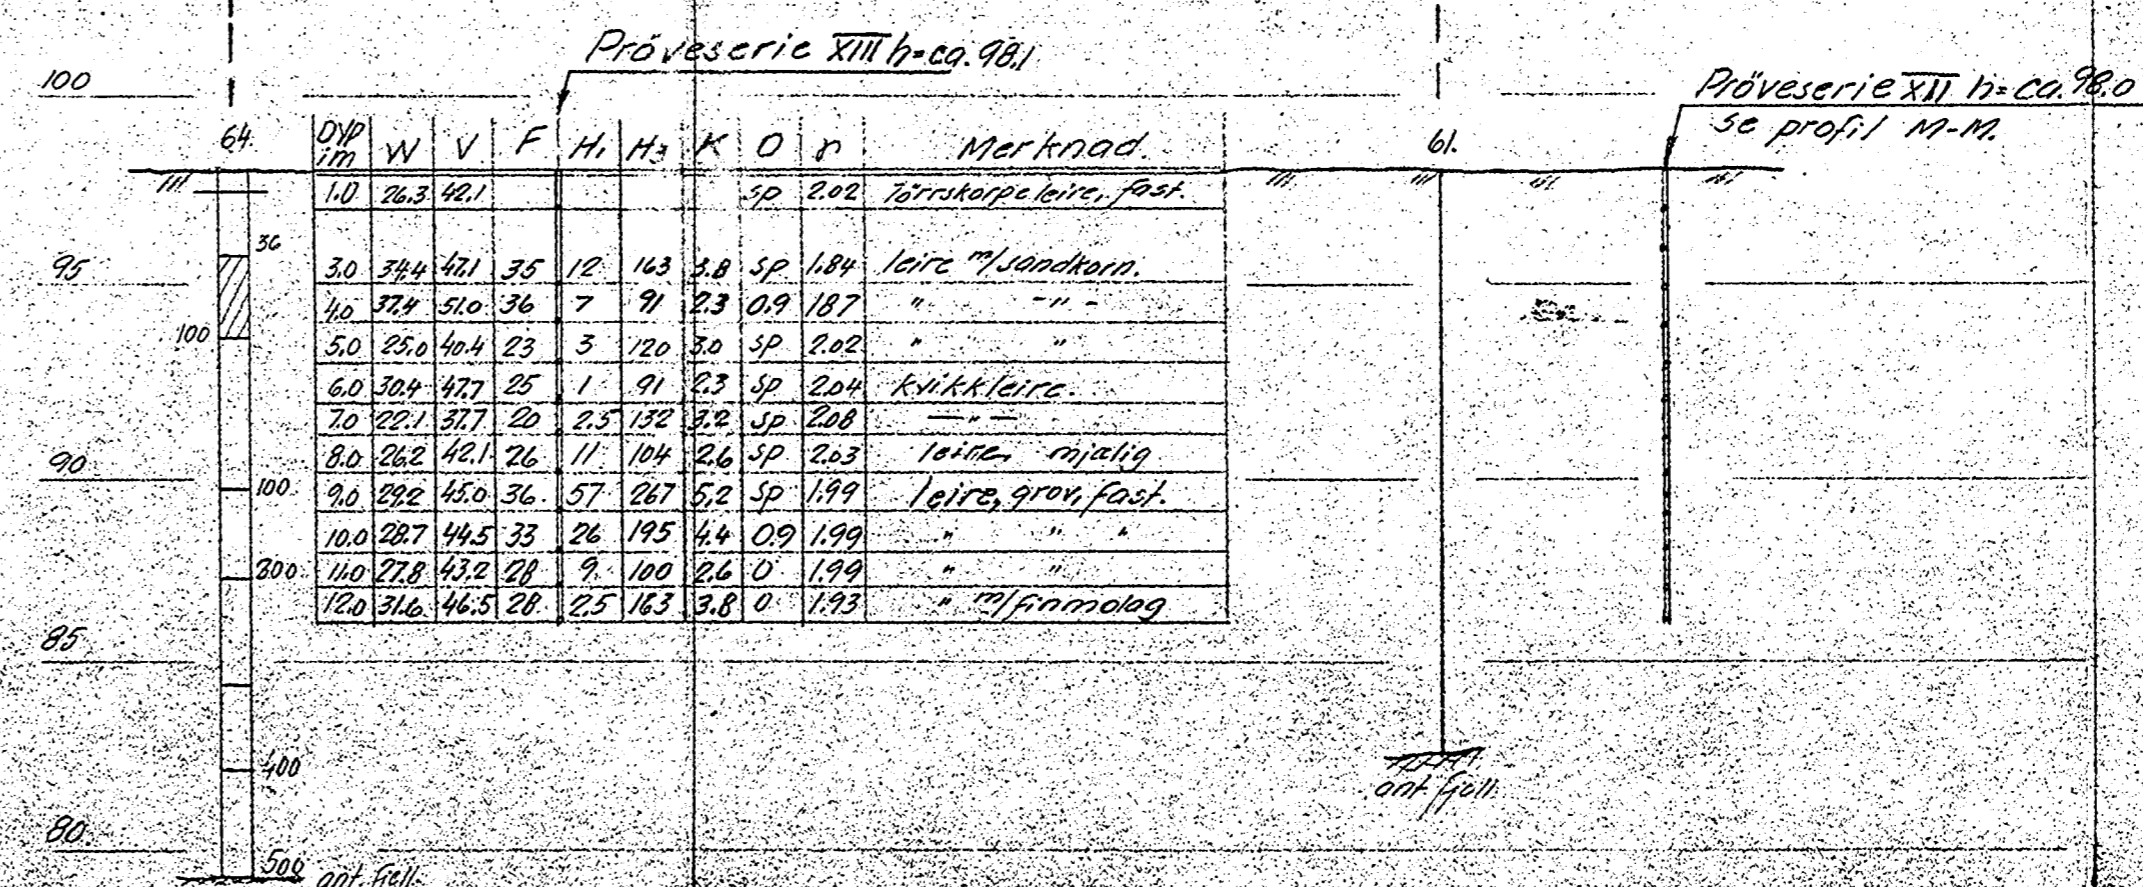 Pröveserie XIII h=ca. 98.1
100
Pröveserie XII h=ca. 98.0
se profil M-M.
64.
61.
DYP im W V F H₁ H₃ K O γ Merknad.
1.0 26.3 42.1 sp 2.02 Törrskorpeleire, fast.
36
95
3.0 34.4 47.1 35 12 163 3.8 sp 1.84 leire m/sandkorn.
4.0 37.4 51.0 36 7 91 2.3 0.9 1.87 " -"-
100
5.0 25.0 40.4 23 3 120 3.0 sp 2.02 " "
6.0 30.4 47.7 25 1 91 2.3 sp 2.04 kvikkleire.
7.0 22.1 37.7 20 2.5 132 3.2 sp 2.08 —"—
90
8.0 26.2 42.1 26 11 104 2.6 sp 2.03 leire, mjælig
100
9.0 29.2 45.0 36. 57 267 5.2 sp 1.99 leire, grov, fast.
10.0 28.7 44.5 33 26 195 4.4 0.9 1.99 " " "
11.0 27.8 43.2 28 9. 100 2.6 0 1.99 " "
12.0 31.6 46.5 28 2.5 163 3.8 0 1.93 " m/finmolag
85
400
ant. fjell
80.
500
ant. fjell.